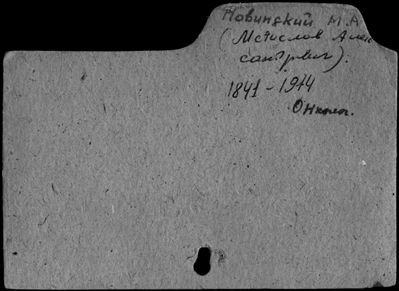 Новинский М.А
(Мстислов Алек
сандрвич).
1841-1914
Онколог.